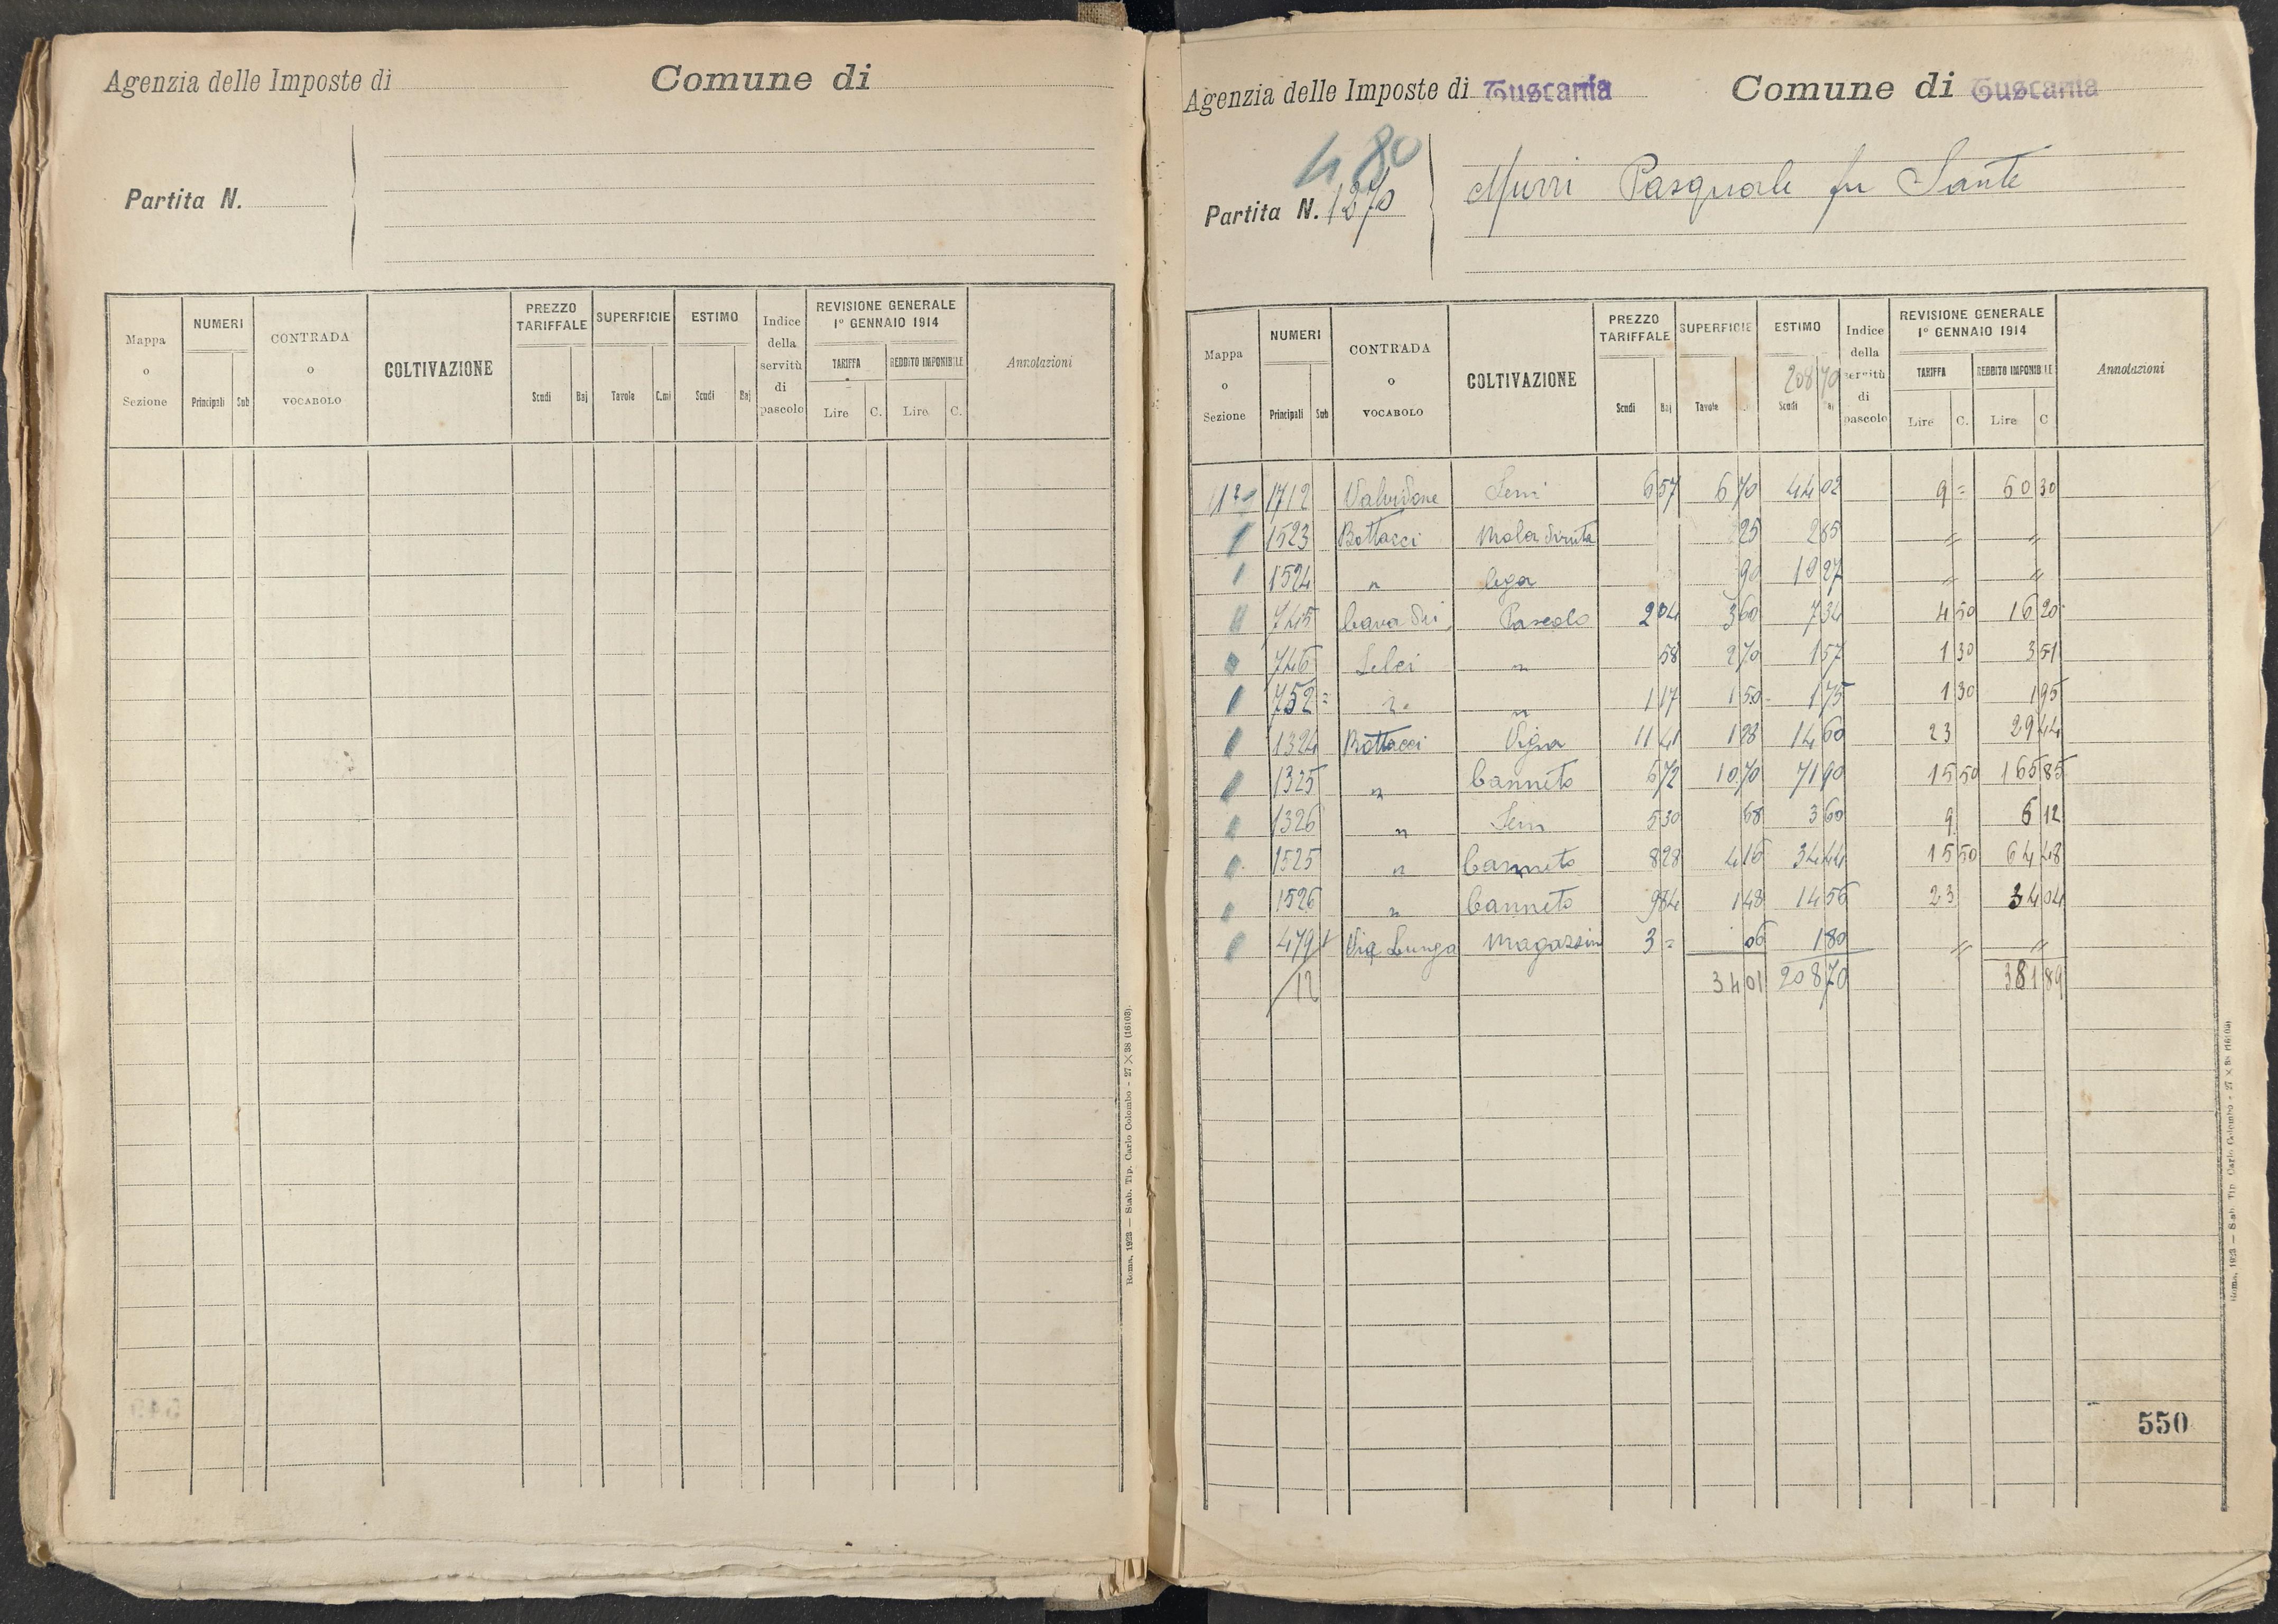 Agenzia delle Imposte di
Comune di
Partita N.
Mappa o Sezione
NUMERI
Principali Sub
CONTRADA o VOCABOLO
COLTIVAZIONE
PREZZO TARIFFALE
Scudi Baj
SUPERFICIE
Tavole C.mi
ESTIMO
Scudi Baj
Indice della servitù di pascolo
REVISIONE GENERALE
1º GENNAIO 1914
TARIFFA
Lire C.
REDDITO IMPONIBILE
Lire C.
Annotazioni
Roma, 1923 — Stab. Tip. Carlo Colombo - 27 × 38 (16103).
Agenzia delle Imposte di Tuscania
Comune di Tuscania
480
Partita N. 1270
Murri Pasquale fu Sante
Mappa o Sezione
NUMERI
Principali Sub
CONTRADA o VOCABOLO
COLTIVAZIONE
PREZZO TARIFFALE
Scudi Baj
SUPERFICIE
Tavole
ESTIMO
208 70
Scudi Baj
Indice della servitù di pascolo
REVISIONE GENERALE
1º GENNAIO 1914
TARIFFA
Lire C.
REDDITO IMPONIBILE
Lire C
Annotazioni
1712 Valvidone Sem 6 57 6 70 44 02 9 = 60 30
1523 Bottacci Mola diruta 25 2 65 " "
1524 " 90 10 27 " "
745 Cava dei Pascolo 2 04 3 60 7 34 4 50 16 20
746 Selci " 58 2 70 1 57 1 30 3 51
752 = " " 1 17 1 50 1 75 1 30 1 95
1324 Bottacci Vigna 11 41 1 28 14 60 23 29 44
1325 " Canneto 6 72 10 70 71 90 15 50 165 85
1326 " Sem 5 30 68 3 60 9 6 12
1525 " Canneto 8 28 4 16 34 44 15 50 64 48
1526 " Canneto 9 84 1 48 14 56 23 34 04
479 1 Via Lunga Magazzin 3 = 06 1 80 " "
12 34 01 208 70 381 89
550
Roma, 1923 — Stab. Tip. Carlo Colombo - 27 × 38 (16103)